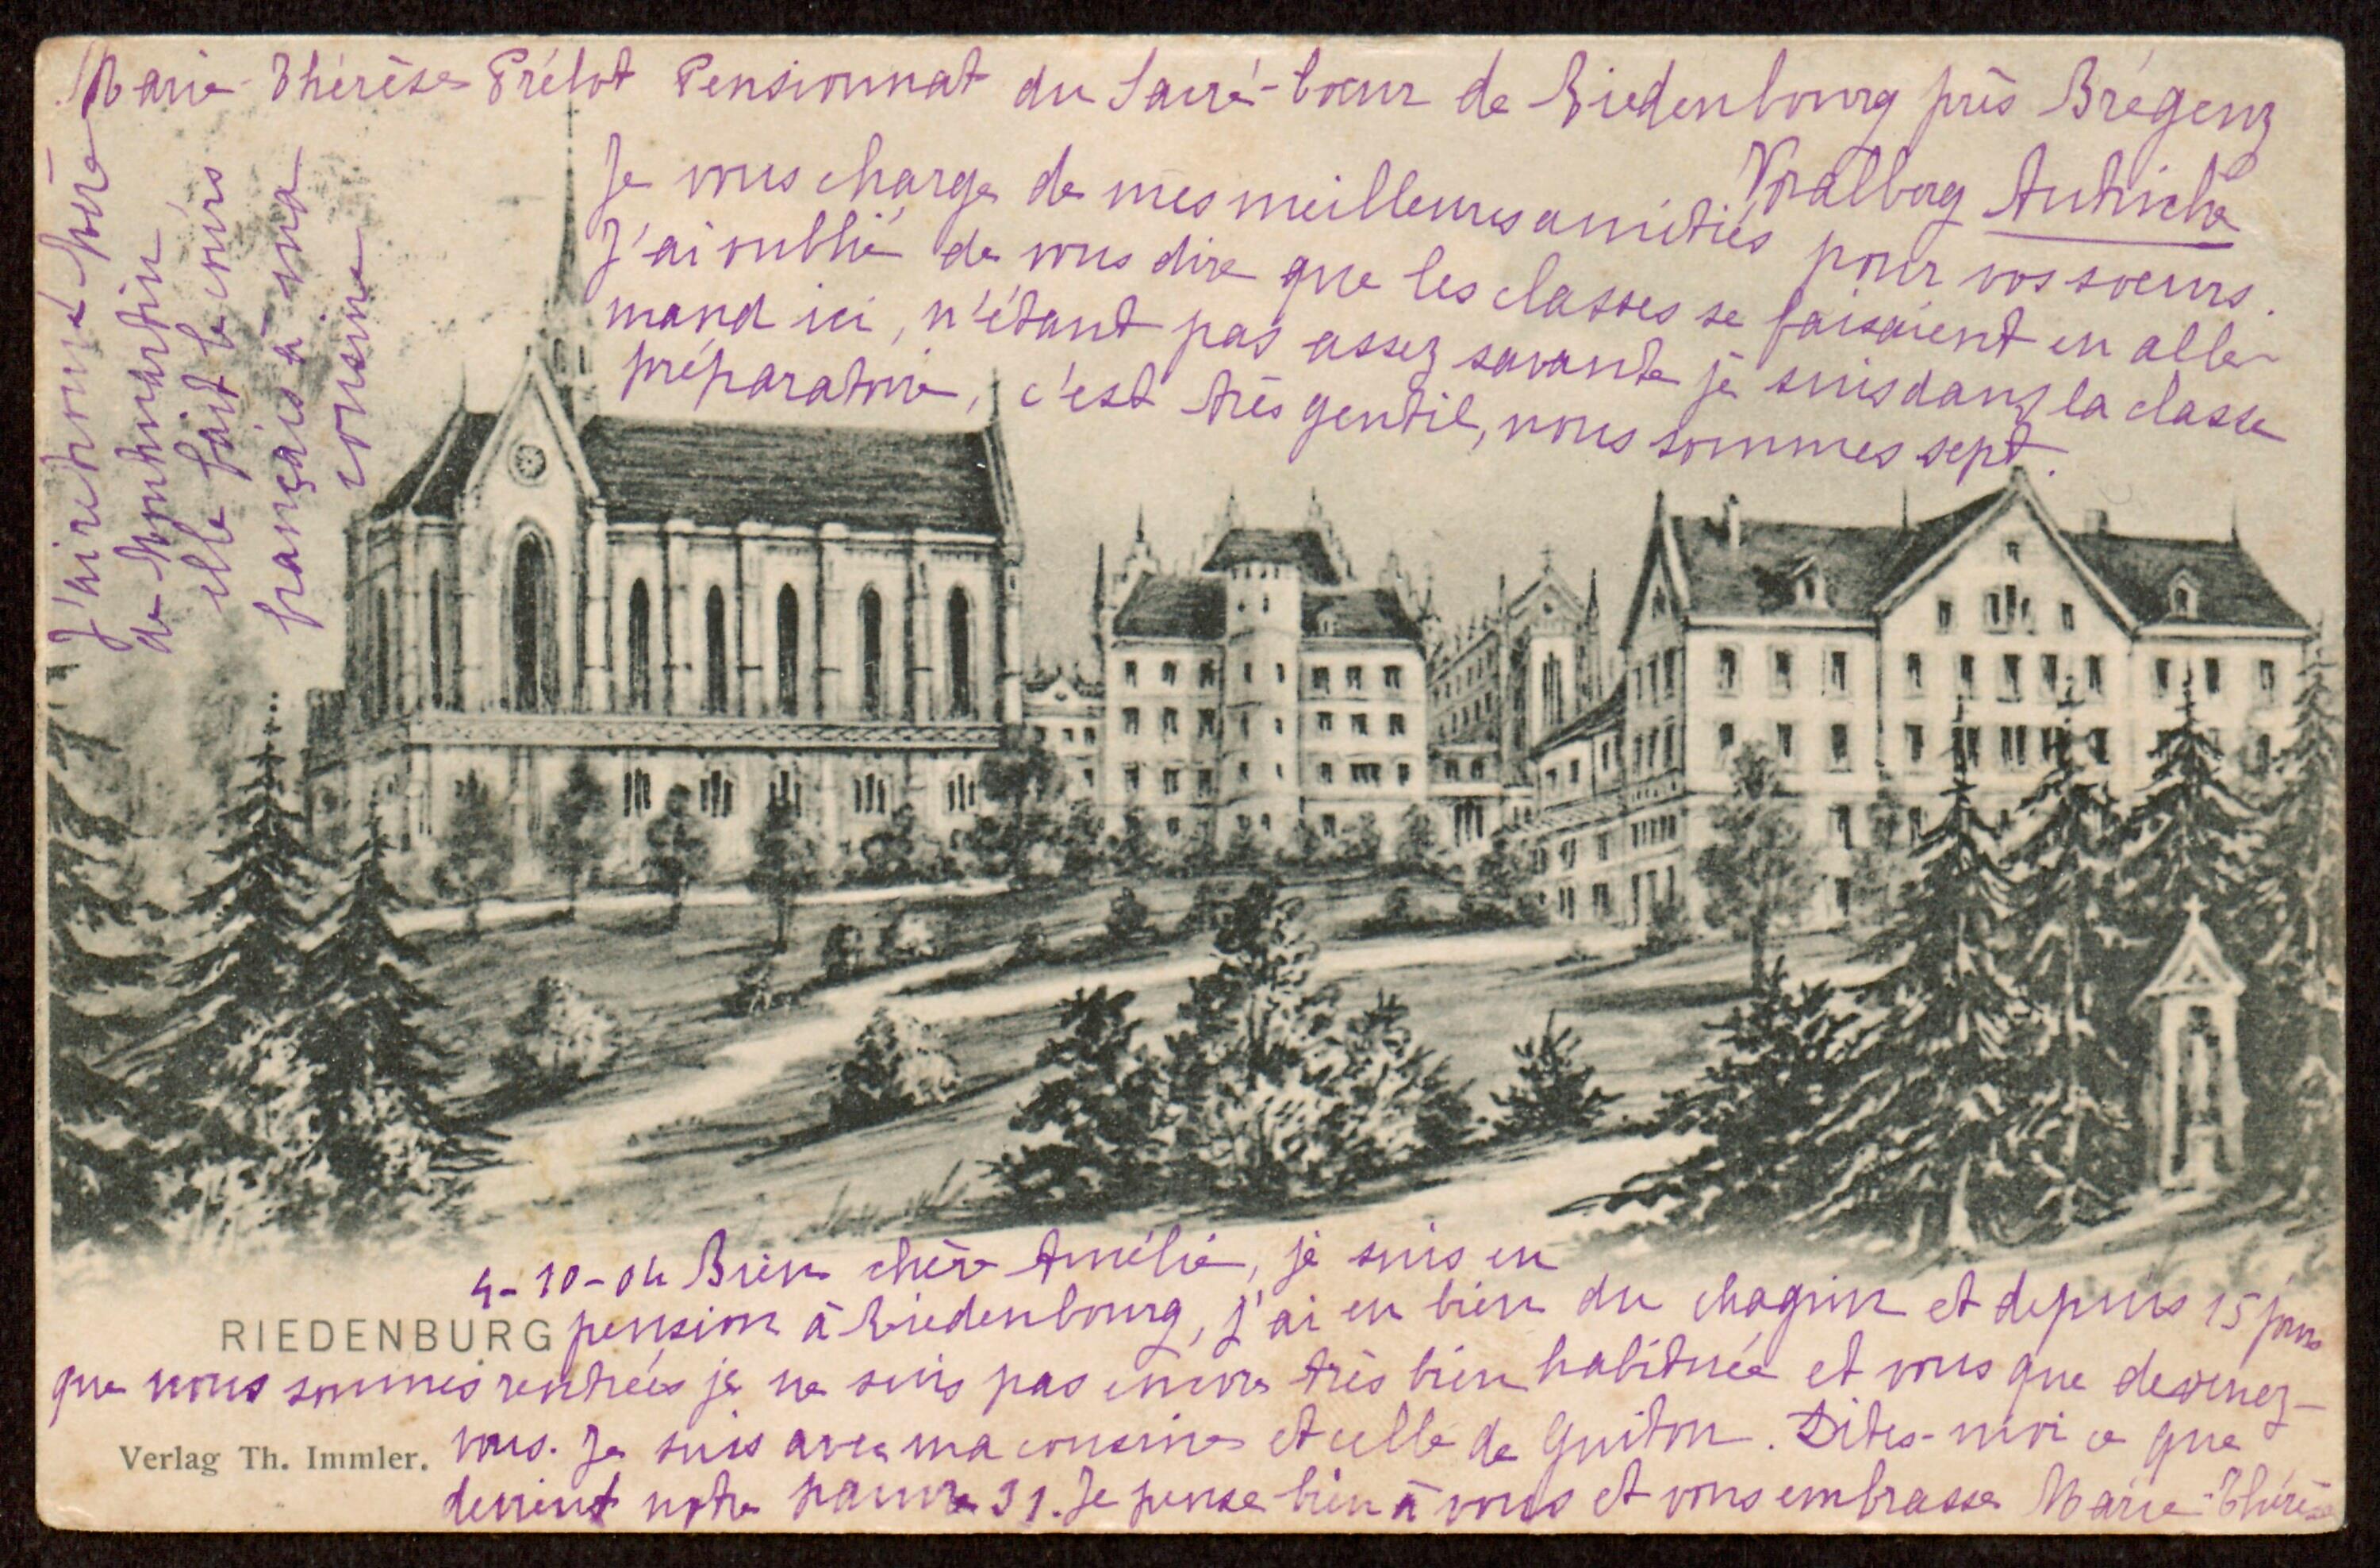 Marie-Thérèse Prélot Pensionnat du Sacré-Coeur de Riedenbourg près Brégenz
Voralberg Autriche
Je vous charge de mes meilleures amitiés pour vos soeurs.
J'ai oublié de vous dire que les classes se faisaient en alle-
mand ici, n'étant pas assez savante je suis dans la classe
préparatoire, c'est très gentil, nous sommes sept.
J'ai retrouvé
de Montmartin
elle fait le cours
français à ma
cousine
4-10-04 Bien chère Amélie, je suis en
RIEDENBURG
pension à Riedenbourg, j'ai eu bien du chagrin et depuis 15 jours
que nous sommes rentrées je ne suis pas encore très bien habituée et vous que devenez-
vous. Je suis avec ma cousine et celle de Guiton. Dites-moi ce que
Verlag Th. Immler.
devient notre pauvre 31. Je pense bien à vous et vous embrasse Marie-Thérèse